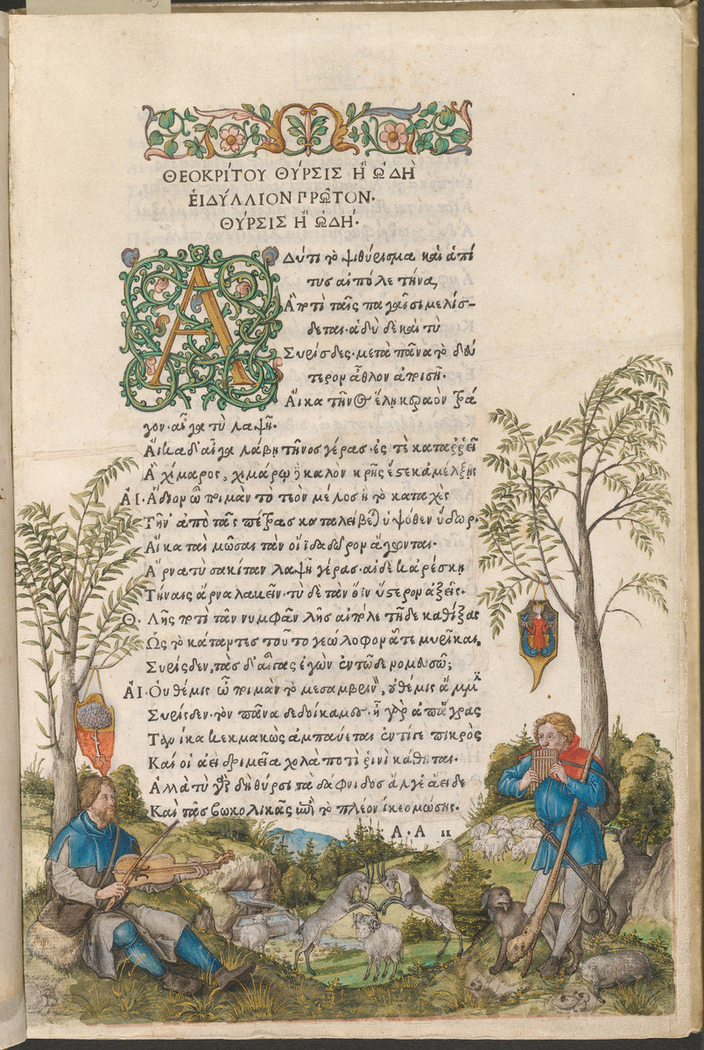 ΘΕΟΚΡΊΤΟΥ ΘΎΡΣΙΣ Ἢ ᾨΔῊ
ἘΙΔΎΛΛΙΟΝ ΠΡΩ͂ΤΟΝ.
ΘΎΡΣΙΣ Ἢ ᾨΔΉ.
Α Δύ τι τὸ ψιθύρισμα καὶ ἁ πί
τυς αἰπόλε τήνα,
Ἃ ποτὶ ταῖς παγαῖσι μελίσ-
δεται· ἁδὺ δὲ καὶ τὺ
Συρίσδες· μετὰ πᾶνα τὸ δεύ
τερον ἆθλον ἀποισῇ.
Αἴκα τῆνος ἕλῃ κεραὸν τρά
γον· αἶγα τὺ λαψῇ.
Αἴκα δ' αἶγα λάβῃ τῆνος γέρας· ἐς τὲ καταρρεῖ
Ἁ χίμαρος, χιμάρω δὲ καλὸν κρῆς ἔστε κ' ἀμέλξῃς
ΑΙ. Ἅδιον ὦ ποιμὰν τὸ τεὸν μέλος ἢ τὸ καταχὲς
Τῆν' ἀπὸ τᾶς πέτρας καταλείβεται ὑψόθεν ὕδωρ.
Αἴκα ταὶ μῶσαι τὰν οἴϊδα δῶρον ἄγωνται.
Ἄρνα τὺ σακίταν λαψῇ γέρας· αἰ δέ κ' ἀρέσκῃ
Τήναις ἄρνα λαβεῖν· τὺ δὲ τὰν ὄϊν ὕστερον ἀξεῖς.
Θ. Λῇς ποτὶ τᾶν νυμφᾶν λῇς αἰπόλε τῇδε καθίξας
Ὡς τὸ κάταντες τοῦτο γεώλοφον ἅτε μυρῖκαι,
Συρίσδεν, τὰς δ' αἶγας ἐγὼν ἐν τῷδε νομευσῶ;
ΑΙ. Οὐ θέμις ὦ ποιμὰν τὸ μεσαμβρινὸν, οὐ θέμις ἄμμιν
Συρίσδεν· τὸν πᾶνα δεδοίκαμες· ἦ γὰρ ἀπ' ἄγρας
Τανίκα κεκμακὼς ἀμπαύεται ἐντί γε πικρὸς
Καί οἱ ἀεὶ δριμεῖα χολὰ ποτὶ ῥινὶ κάθηται.
Ἀλλὰ τὺ γὰρ δὴ θύρσι τὰ δάφνιδος ἄλγε' ἄειδες
Καὶ τᾶς βωκολικᾶς ἐπὶ τὸ πλέον ἵκεο μώσης.
Α.Α ii